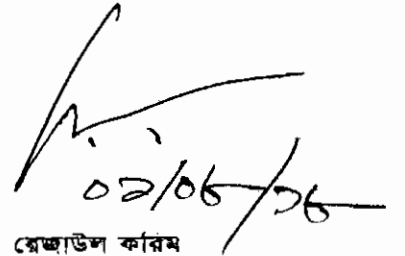 ০২/০৬/১৬
রেজাউল করিম